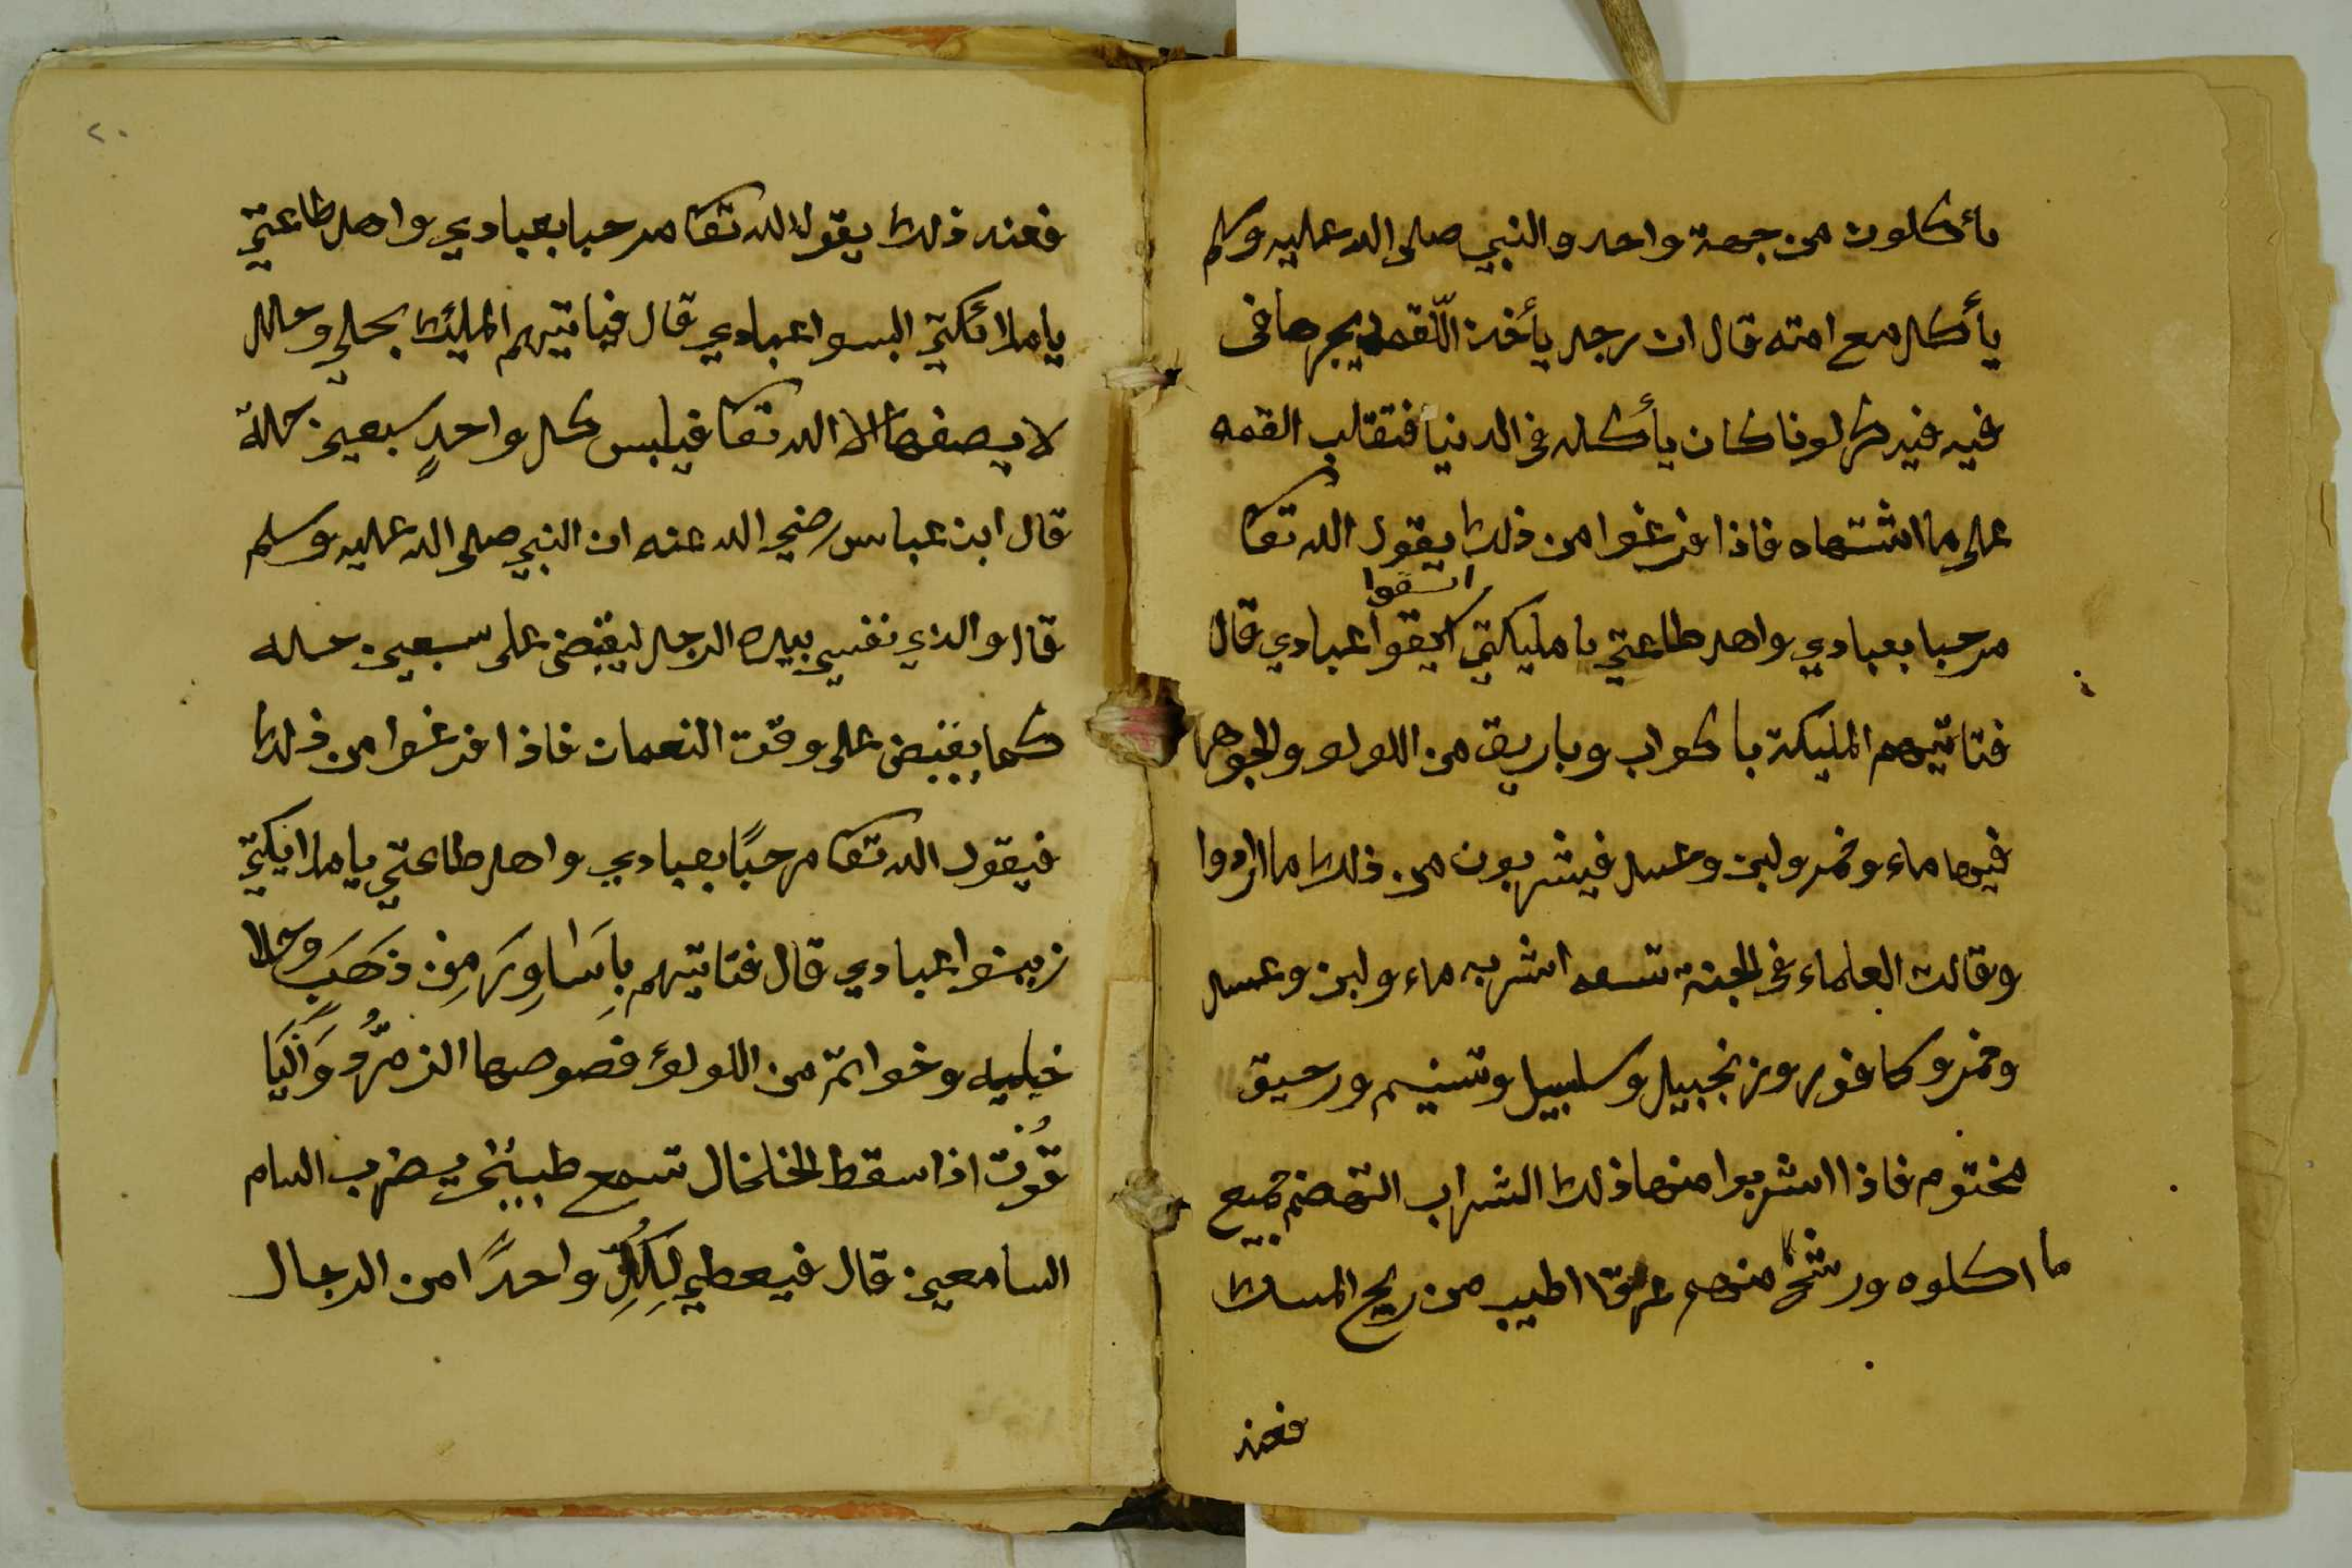 يأكلون من جهة واحد والنبي صلى الله عليه وسلم
يأكل مع امته قال ان رجل يأخذ اللّقمه يجرها في
فيه فيذكر لونا كان يأكله في الدنيا فتقلب القمه
على ما اشتهاه فاذا فرغوا من ذلك يقول الله تعا
اسقوا
مرحبا بعبادي واهل طاعتي يا مليكتي اسقوا عبادي قال
فتاتيهم المليكة باكواب وباريق من اللولو والجوهر
فيها ماء وخمر ولبن وعسل فيشربون من ذلك ما ارادوا
وقالت العلماء في الجنة تسعه اشربه ماء ولبن وعسل
وخمر وكافور وزنجبيل وسلسبيل وتسنيم ورحيق
مختوم فاذا اشربوا منها ذلك الشراب التهضم جميع
ما اكلوه ورشح منهم عرقا اطيب من ريح المسك
فعند
٢٠
فعند ذلك يقول الله تعا مرحبا بعبادي واهل طاعتي
يا ملائكتي البسوا عبادي قال فياتيهم المليئك بحلي وحلل
لا يصفها الا الله تعا فيلبس كل واحدٍ سبعين حلة
قال ابن عباس رضي الله عنه ان النبي صلى الله عليه وسلم
قال والذي نفسي بيده الرجل ليقبض على سبعين حله
كما يقبض على وقت النعمان فاذا فرغوا من ذلك
فيقول الله تعا مرحبًا بعبادي واهل طاعتي يا ملايكتي
زينوا عبادي قال فتاتيهم بِاَسَاوِرَ مِن ذَهَبٍ وخلا
خيليه وخواتم من اللولؤ فصوصها الزمرُّد وَاَليَا
قُوت اذا سقط الخلخال تسمع طنين يضرب السام
السامعين قال فيعطي لِكُلِّ واحدًا من الرجال